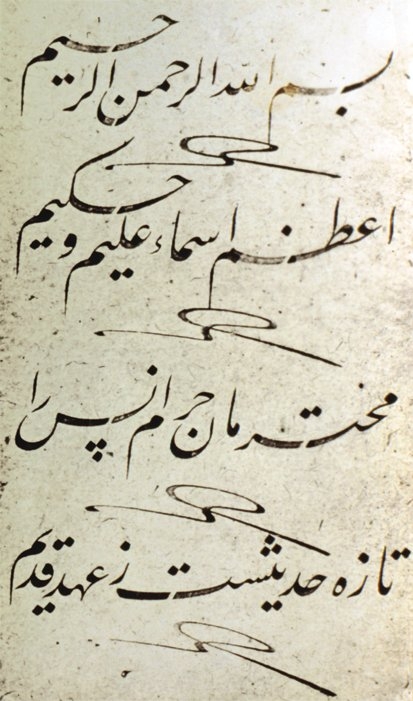 بسم الله الرحمن الرحیم
اعظم اسماء علیم و حکیم
محترمان حرم انس را
تازه حدیثست ز عهد قدیم